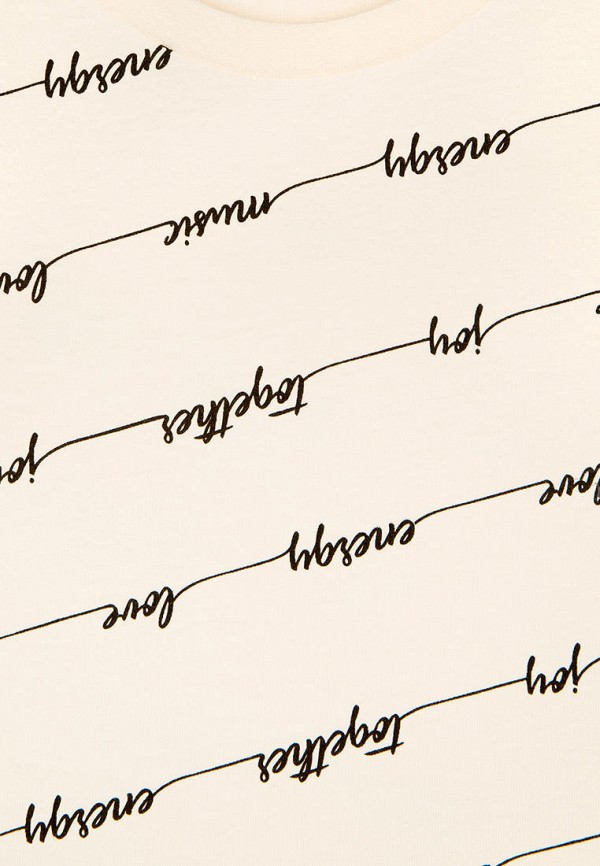 joy together energy
love energy love
joy together joy
energy music lov
energy